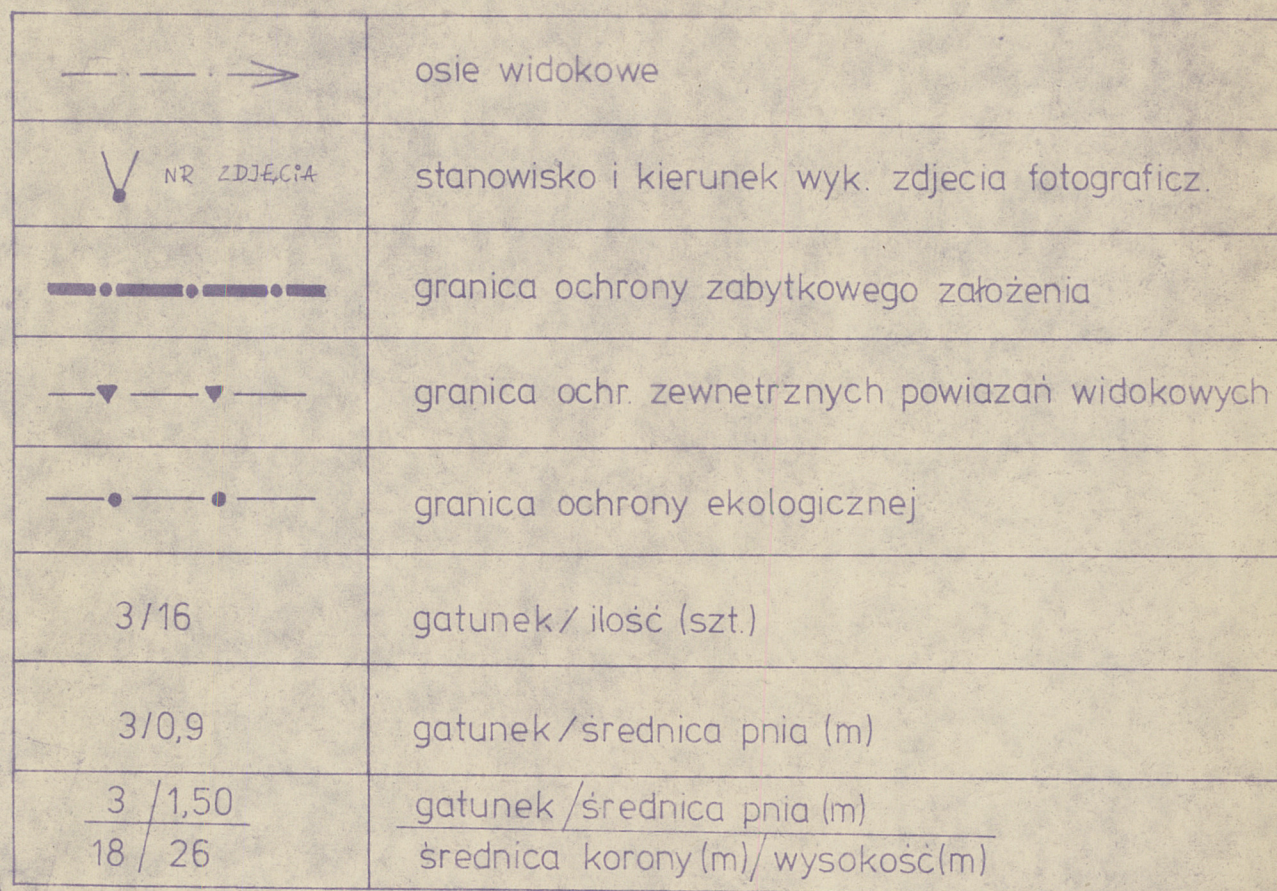 osie widokowe
NR ZDJĘCIA stanowisko i kierunek wyk. zdjecia fotograficz.
granica ochrony zabytkowego założenia
granica ochr. zewnetrznych powiazań widokowych
granica ochrony ekologicznej
3/16 gatunek/ ilość (szt.)
3/0,9 gatunek/średnica pnia (m)
3/1,50 gatunek/średnica pnia (m)
18/26 średnica korony (m)/wysokość(m)